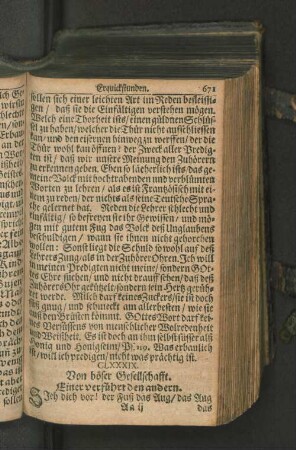 Erquickstunden. 671
sollen sich einer leichten Art im Reden befleissi-
gen / daß sie die Einfältigen verstehen mögen.
Welch eine Thorheit ists / einen güldnen Schlüs-
sel zu haben / welcher die Thür nicht aufschliessen
kan / und den eisernen hinweg zu werffen / der die
Thür wohl kan öffnen? der Zweck aller Predig-
ten ist / daß wir unsere Meinung den Zuhörern
zu erkennen geben. Eben so lächerlich ists / das ge-
meine Volck mit hochtrabenden und verblümten
Worten zu lehren / als es ist Frantzösisch mit ei-
nem zu reden / der nichts als seine Teutsche Spra-
che gelernet hat. Reden die Lehrer schlecht und
einfältig / so befreyen sie ihr Gewissen / und mö-
gen mit gutem Fug das Volck deß Unglaubens
beschuldigen / wann sie ihnen nicht gehorchen
wollen. Sonst liegt die Schuld so wohl auf deß
Lehrers Zung / als in der Zuhörer Ohren. Ich will
in meinen Predigten nicht meine / sondern GOt-
tes Ehr suchen / und nicht drauf sehen / daß deß
Zuhörers Ohr gekützelt / sondern sein Hertz gerüh-
ret werde. Milch darf keines Zuckers / sie ist doch
süß gnug / und schmeckt am allerbesten / wie sie
aus den Brüsten kömmt. GOttes Wort darf kei-
nes Versüssens von menschlicher Wolredenheit
und Weißheit. Es ist doch an ihm selbst süsser als
Honig und Honigseim / Ps. 19. Was erbaulich
ist / will ich predigen / nicht was prächtig ist.
CLXXXIX.
Von böser Gesellschafft.
Einer verführt den andern.
Sih dich vor! der Faß das Aug / das Aug
Aa ij das